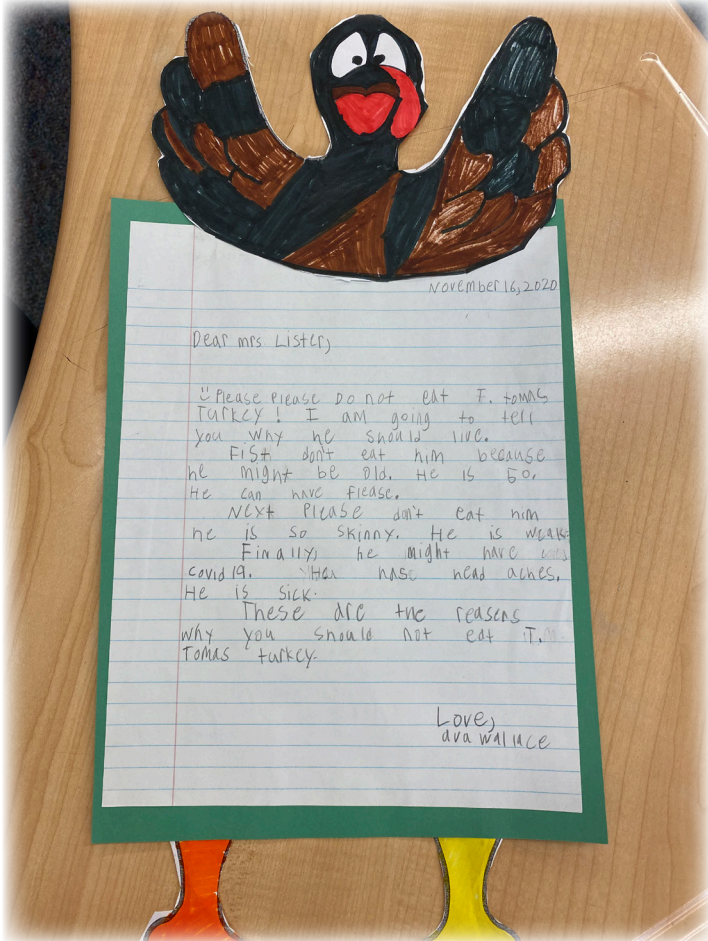 November 16, 2020
Dear mrs. Lister,
Please Please Do not eat T. tomas
Turkey! I am going to tell
you why he should live.
Fist don't eat him because
he might be old. He is 50.
He can have flease.
Next Please don't eat him
he is so skinny. He is weak.
Finally, he might have
covid 19. He has head aches.
He is sick.
These are the reasons
why you should not eat T.
Tomas turkey.
Love,
ava wallace